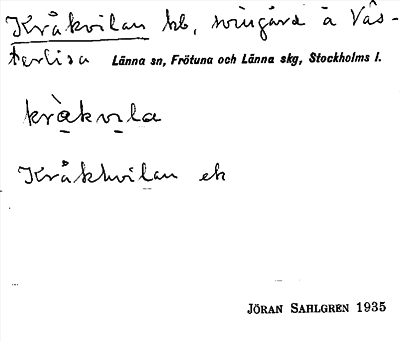 Kråkvilan hb, svingård å Väs-
terlisa Länna sn, Frötuna och Länna skg, Stockholms l.
kràkvila
Kråkhvilan ek
JÖRAN SAHLGREN 1935